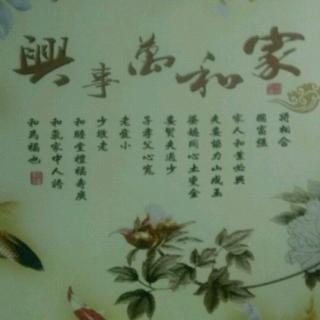 家和萬事興
將相合
國富強
家人和業必興
夫妻協力山成玉
婆媳同心土變金
妻賢夫過少
子孝父心寬
老愛小
少敬老
和睦堂禮福壽廣
和氣家中人誇
和為福也